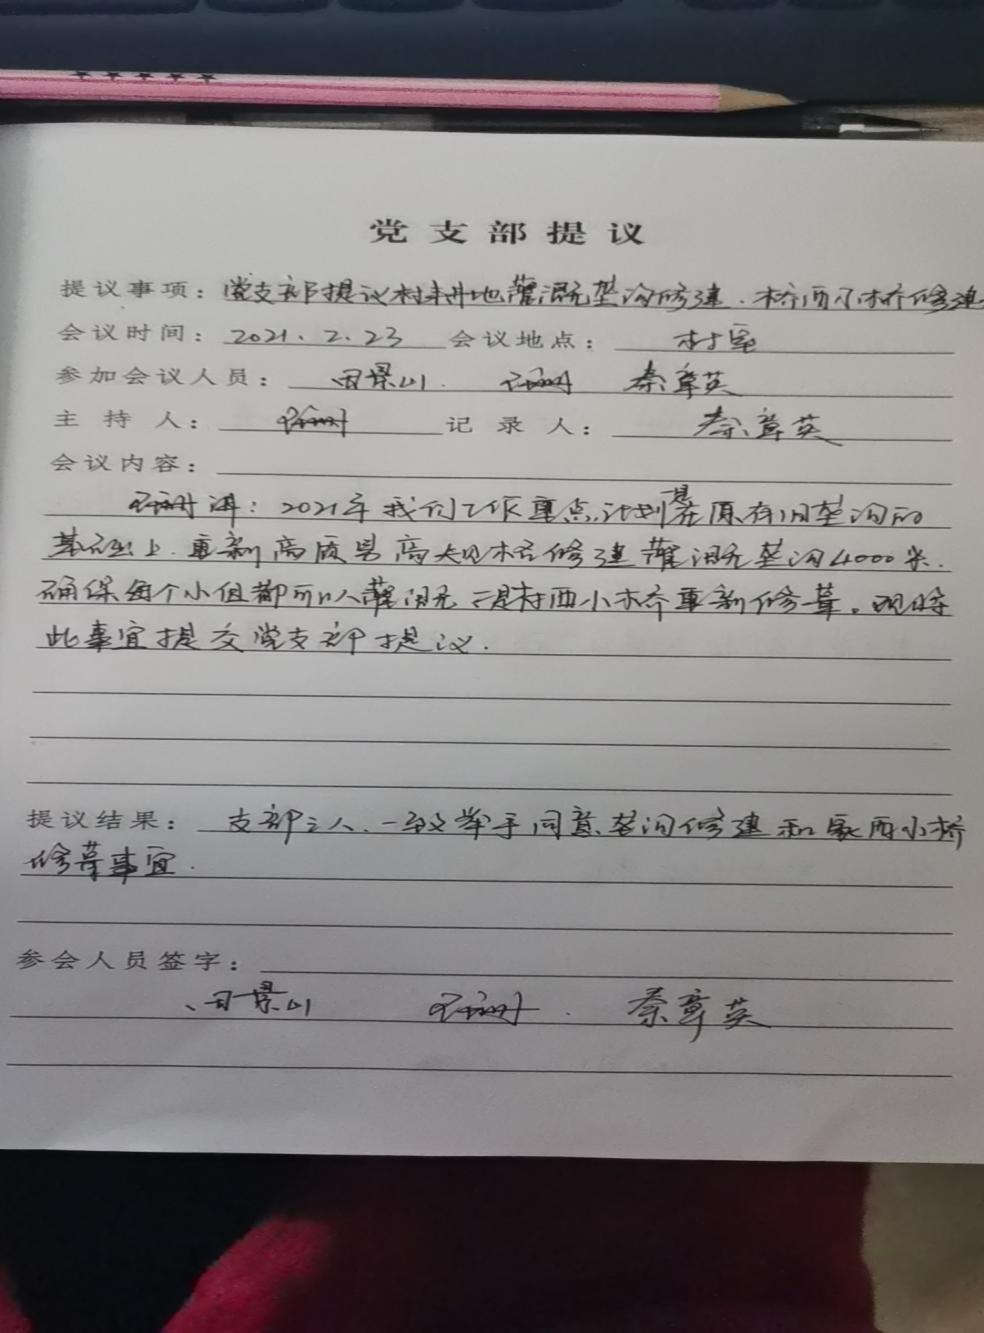 党支部提议
提议事项：党支部提议村耕地灌溉垄沟修建．桥西小桥修建
会议时间：2021．2．23 会议地点：村室
参加会议人员：司景山． 秦章英
主持人： 记录人：秦章英
会议内容：
讲：2021年我们工作重点，计划是在原有旧垄沟的
基础上．重新高质量高规格修建灌溉垄沟4000米．
确保每个小组都可以灌溉 二是村西小桥重新修葺。现将
此事宜提交党支部提议．
提议结果：支部三人．一致举手同意．垄沟修建和家西小桥
修葺事宜．
参会人员签字：
司景山 秦章英